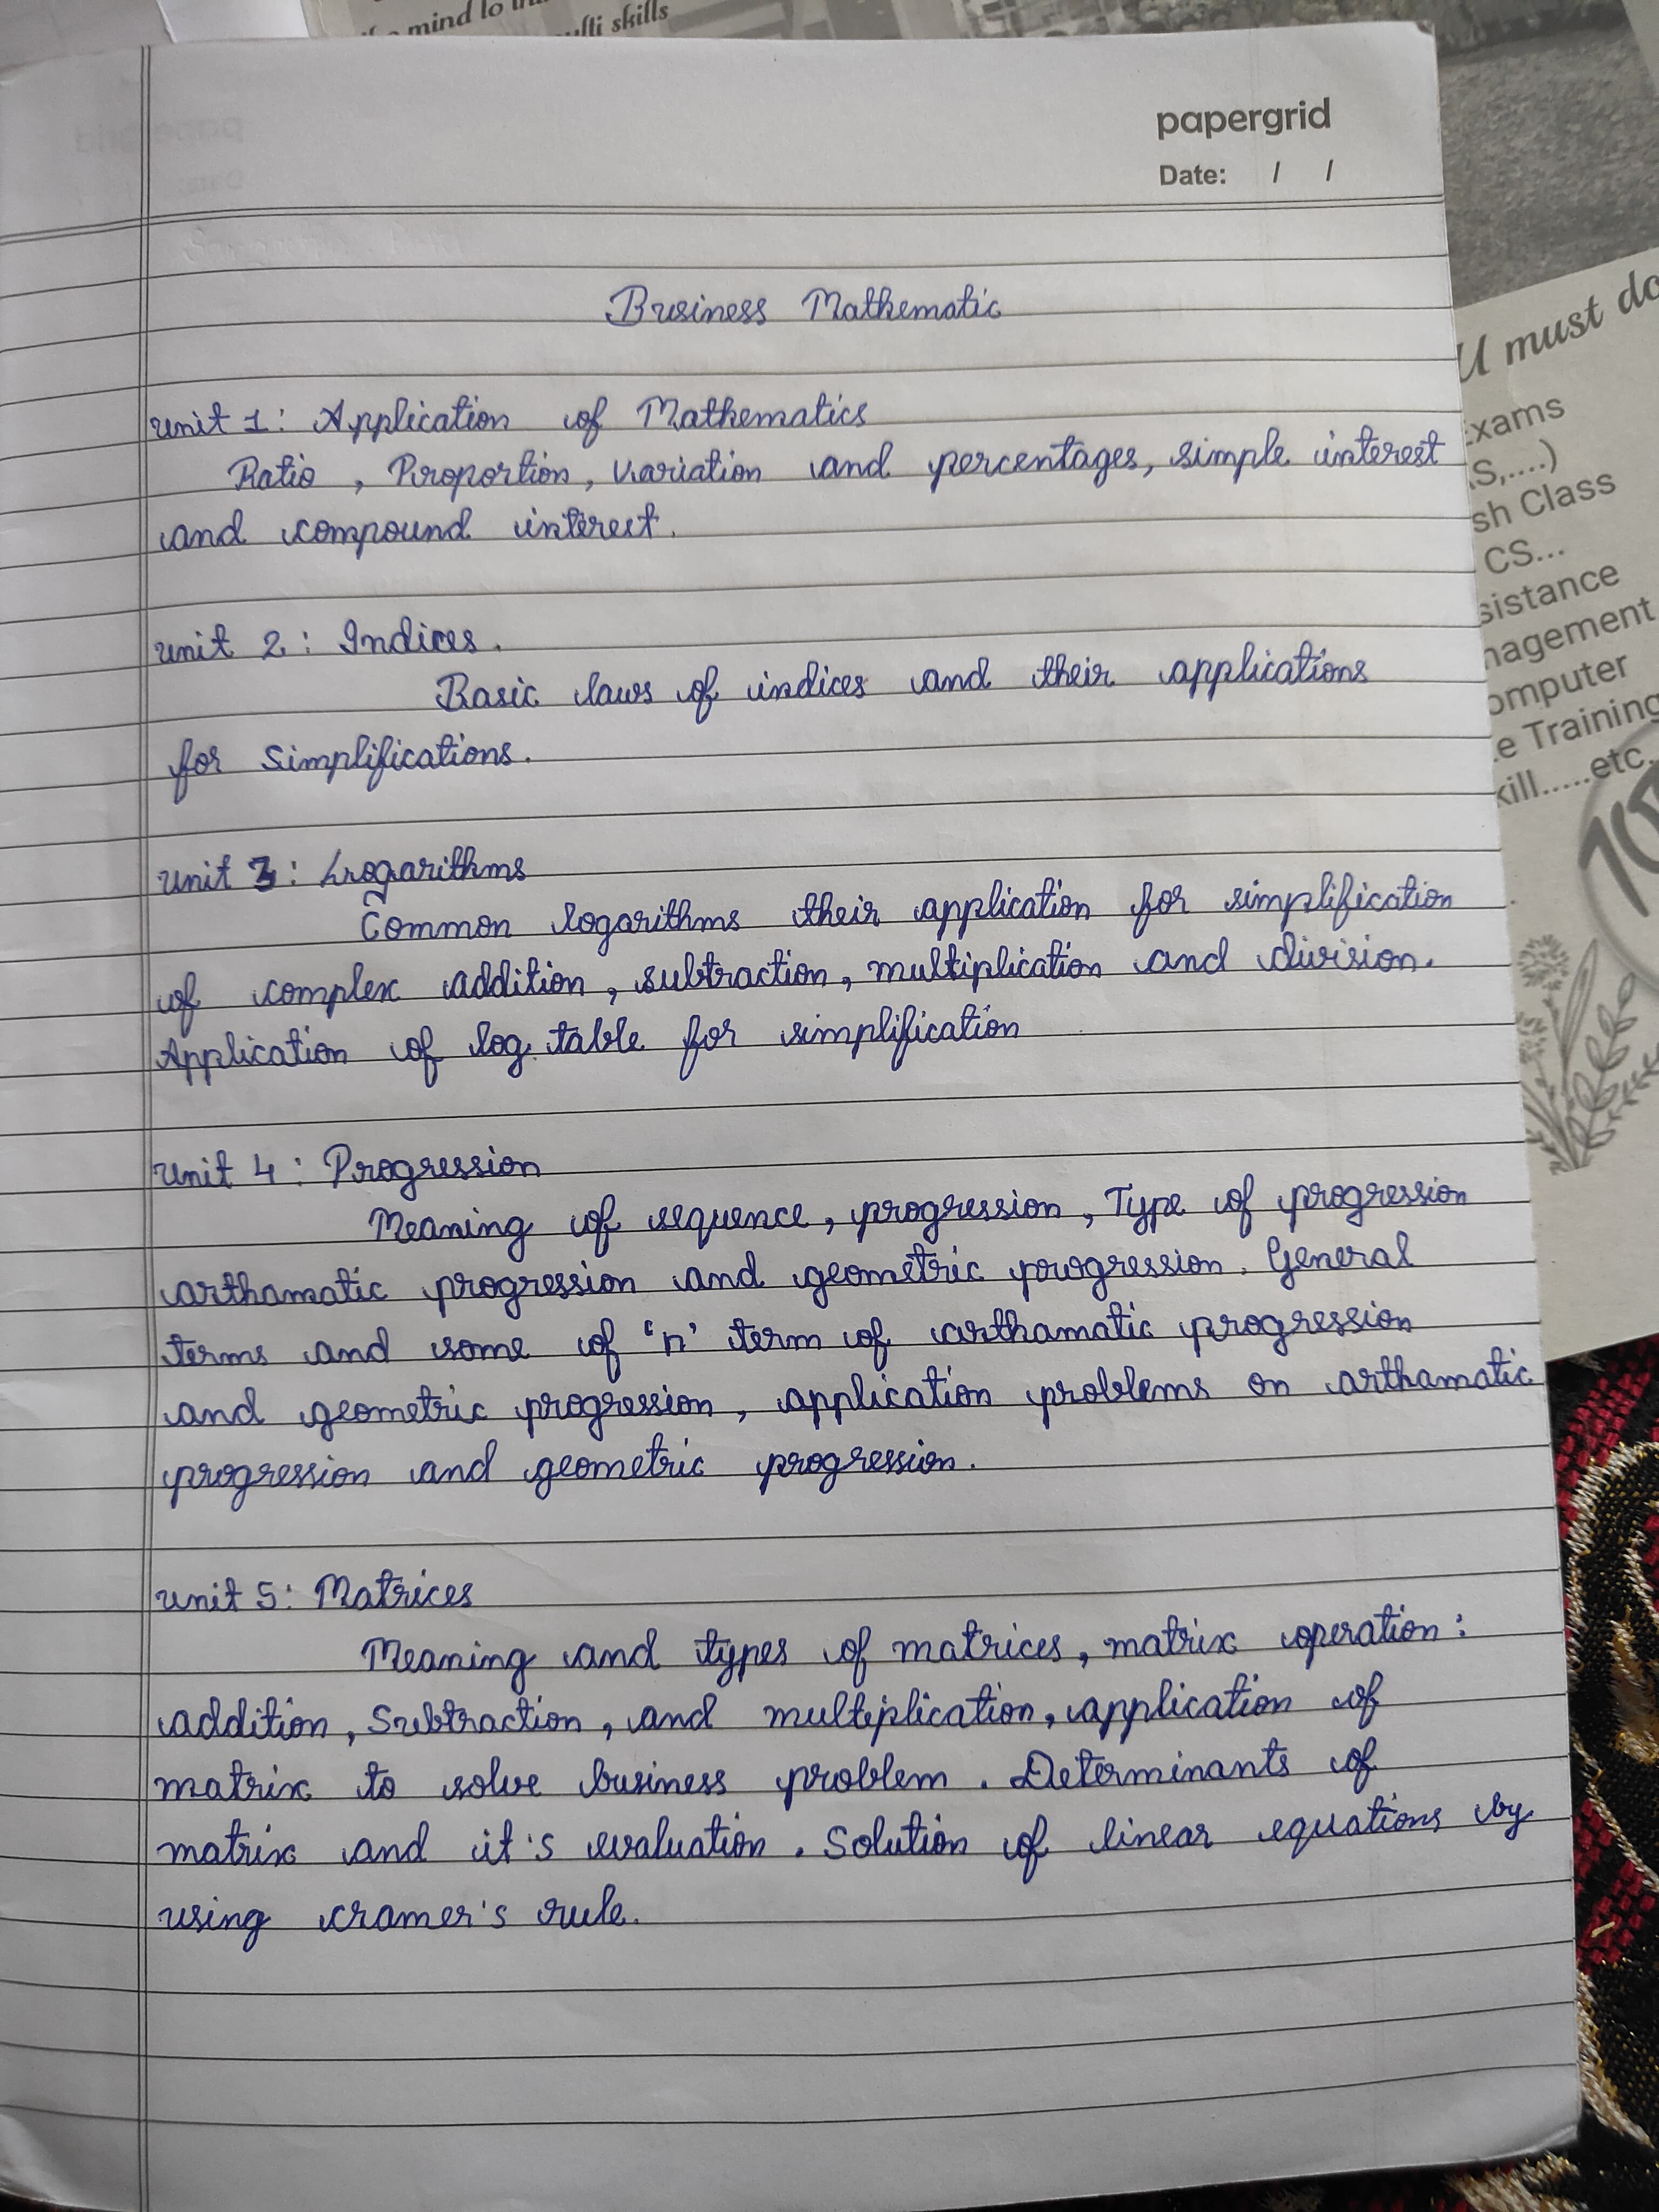 mind to
ulti skills
papergrid
Date: / /
Business Mathematic
Unit 1: Application of Mathematics
Ratio, Proportion, Variation and percentages, simple interest
and compound interest.
Unit 2: Indices.
Basic laws of indices and their applications
for simplifications.
Unit 3: Logarithms
Common logarithms their application for simplification
of complex addition, subtraction, multiplication and division.
Application of log table for simplification
Unit 4: Progression
Meaning of sequence, progression, Type of progression
arthamatic progression and geometric progression. General
terms and some of 'n' term of arthamatic progression
and geometric progression, application problems on arthamatic
progression and geometric progression.
Unit 5: Matrices
Meaning and types of matrices, matrix operation:
addition, Subtraction, and multiplication, application of
matrix to solve business problem. Determinants of
matrix and it's evaluation. Solution of linear equations by
using cramer's rule.
U must do
Exams
S,....)
sh Class
CS...
sistance
nagement
omputer
e Training
kill.....etc.